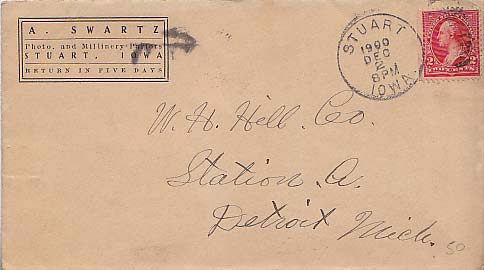 A. SWARTZ
Photo. and Millinery Parlors
STUART, IOWA
RETURN IN FIVE DAYS
STUART
1900
DEC
2
8PM
IOWA
2 2
W. H. Hill. Co.
Station A.
Detroit Mich.
50